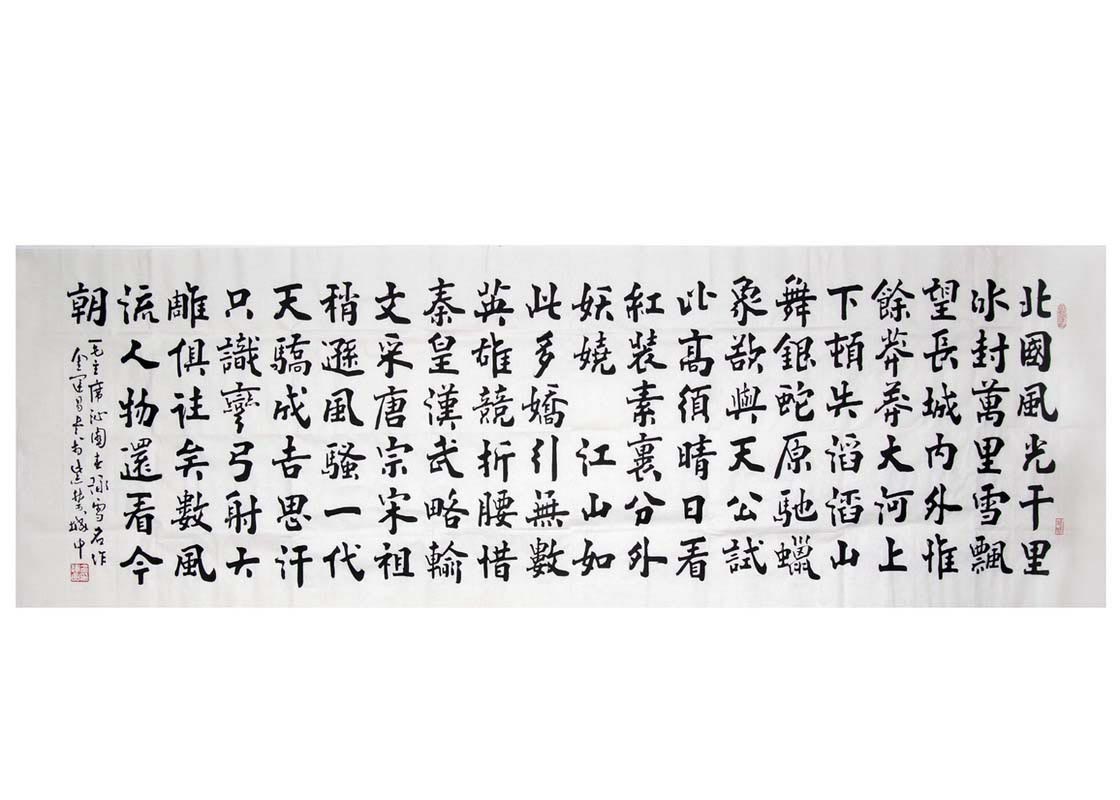 北國風光千里
冰封萬里雪飄
望長城内外惟
餘莽莽大河上
下頓失滔滔山
舞銀蛇原馳蠟
象欲與天公試
比高須晴日看
紅裝素裹分外
妖嬈 江山如
此多嬌引無數
英雄競折腰惜
秦皇漢武略輸
文采唐宗宋祖
稍遜風騷一代
天驕成吉思汗
只識彎弓射大
雕俱往矣數風
流人物還看今
朝
毛主席沁園春詠雪名作